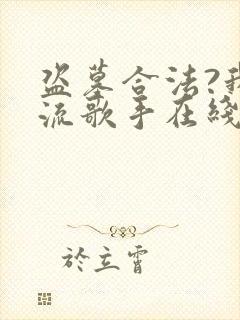 盗墓合法?我
流歌手在綫
於立霄